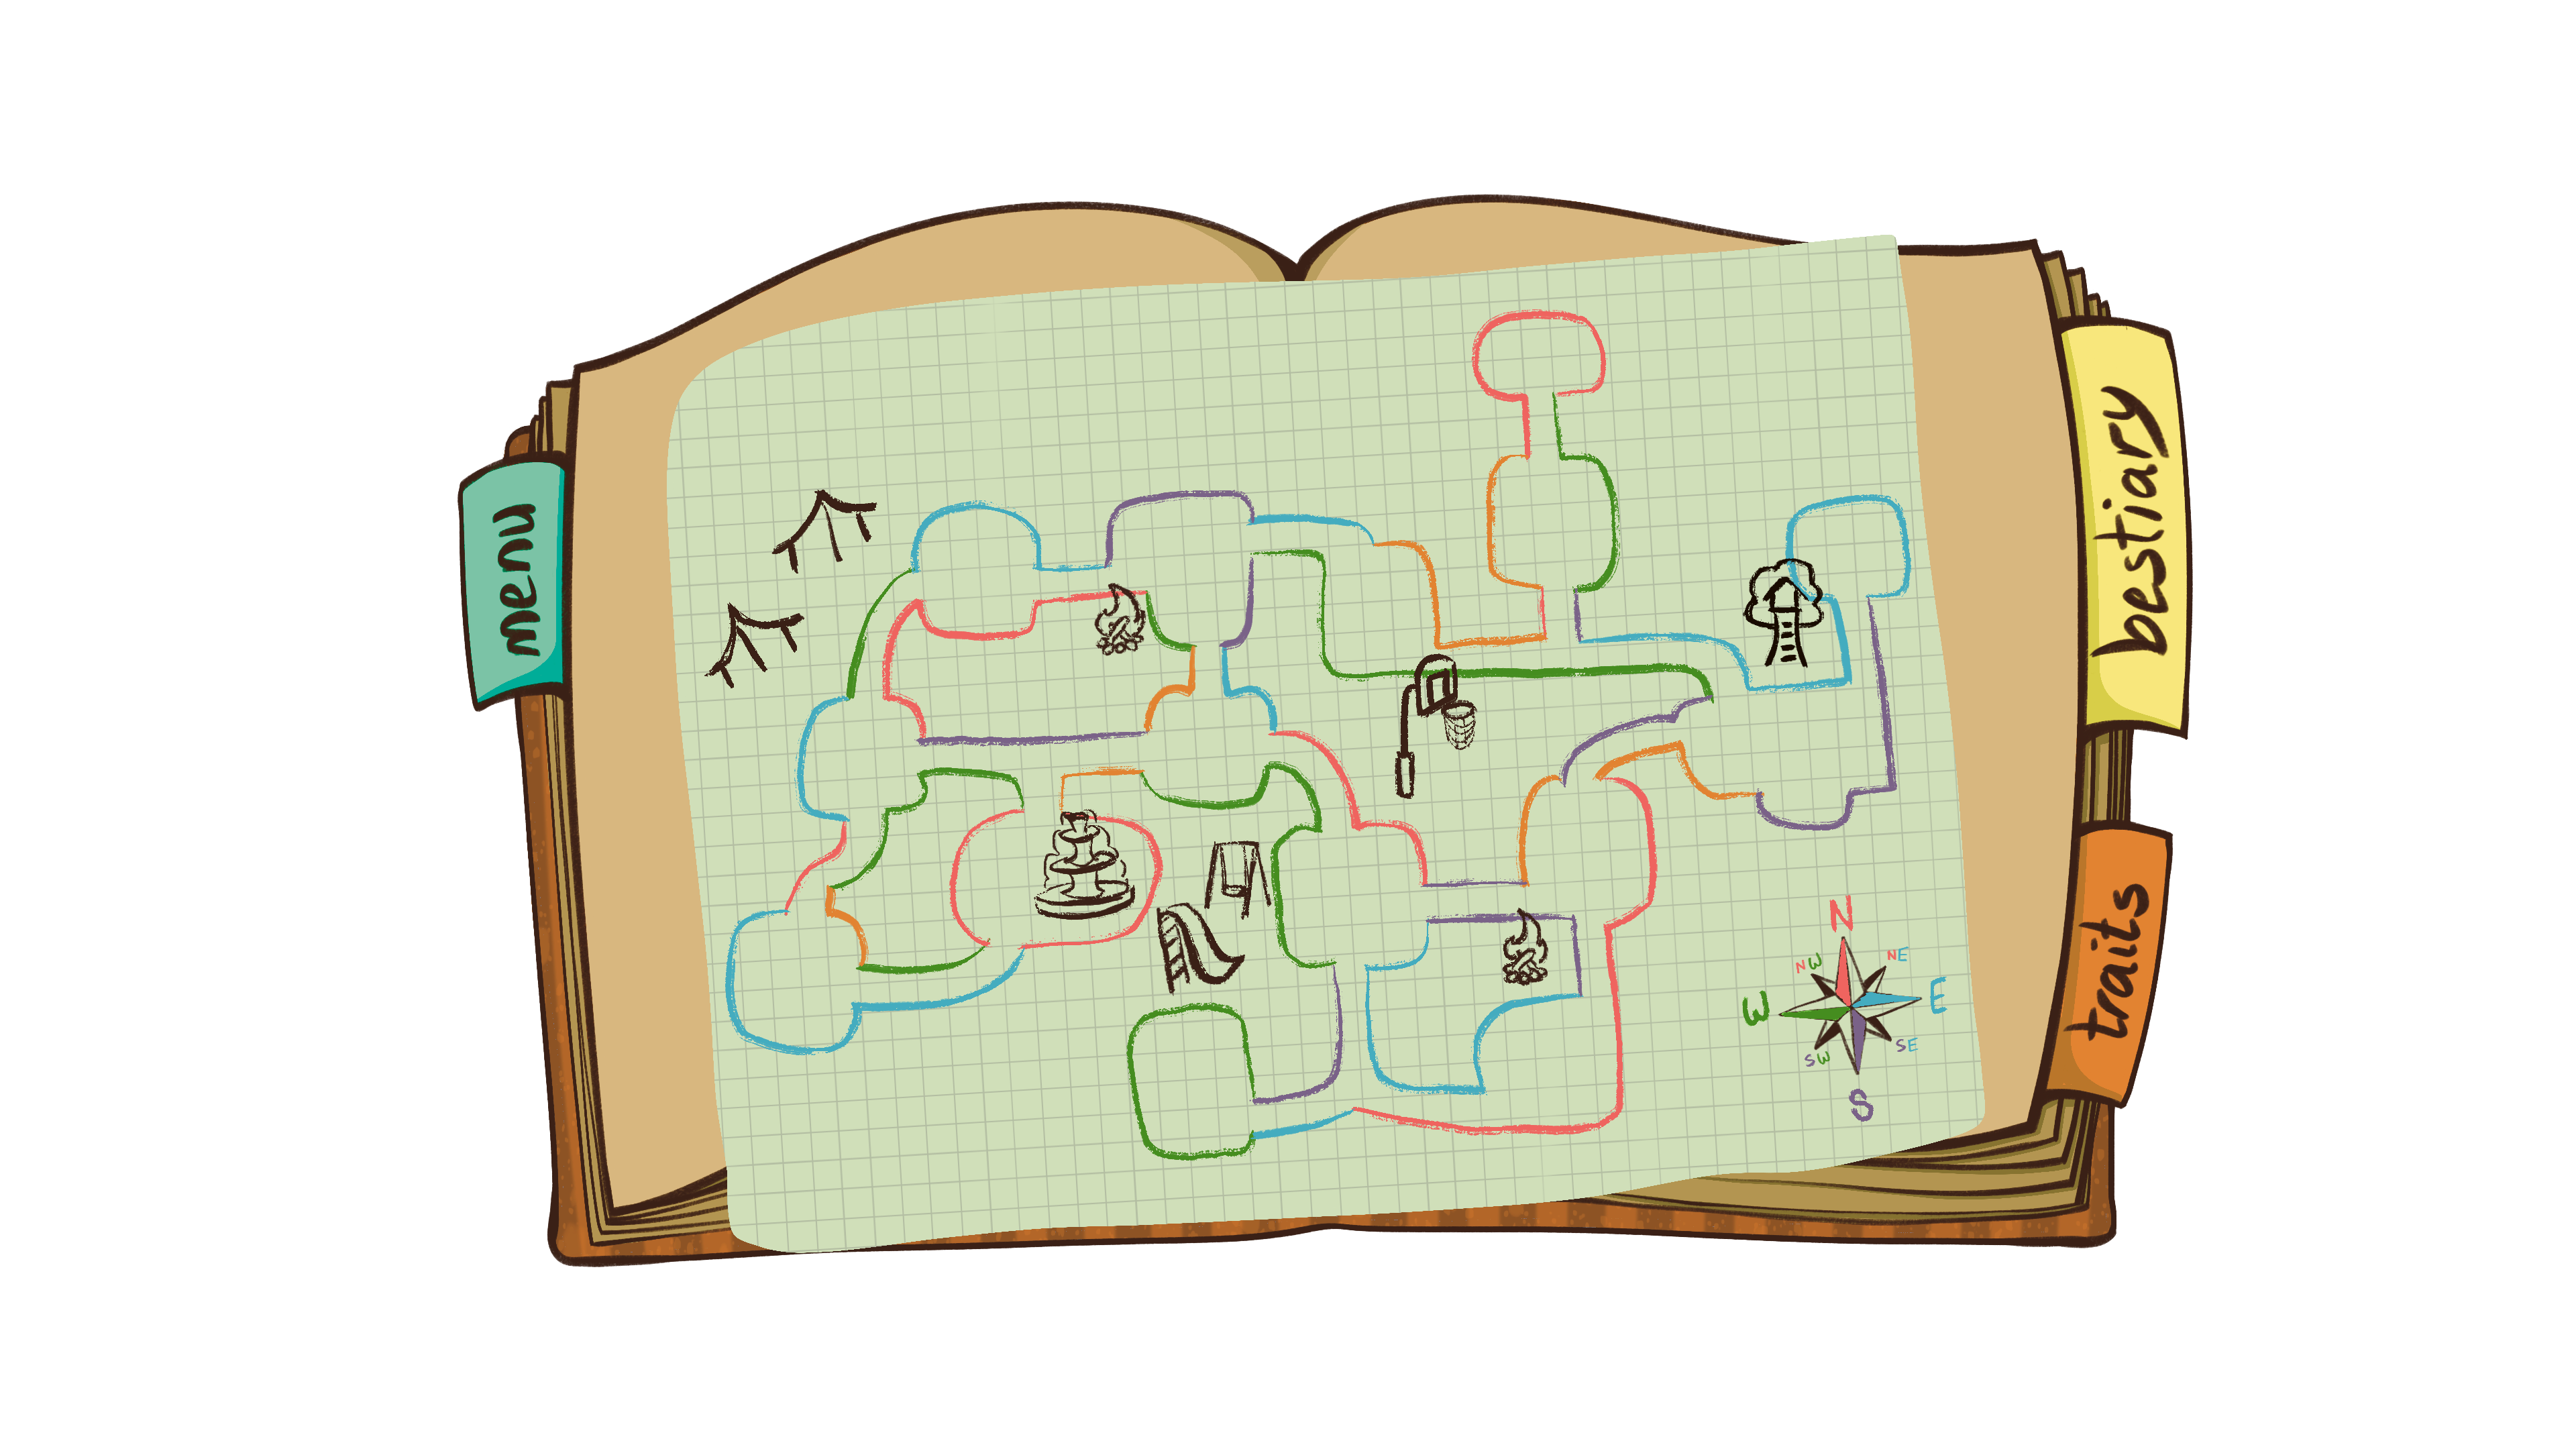 menu
bestiary
traits
N
NW
NE
W
E
SW
SE
S